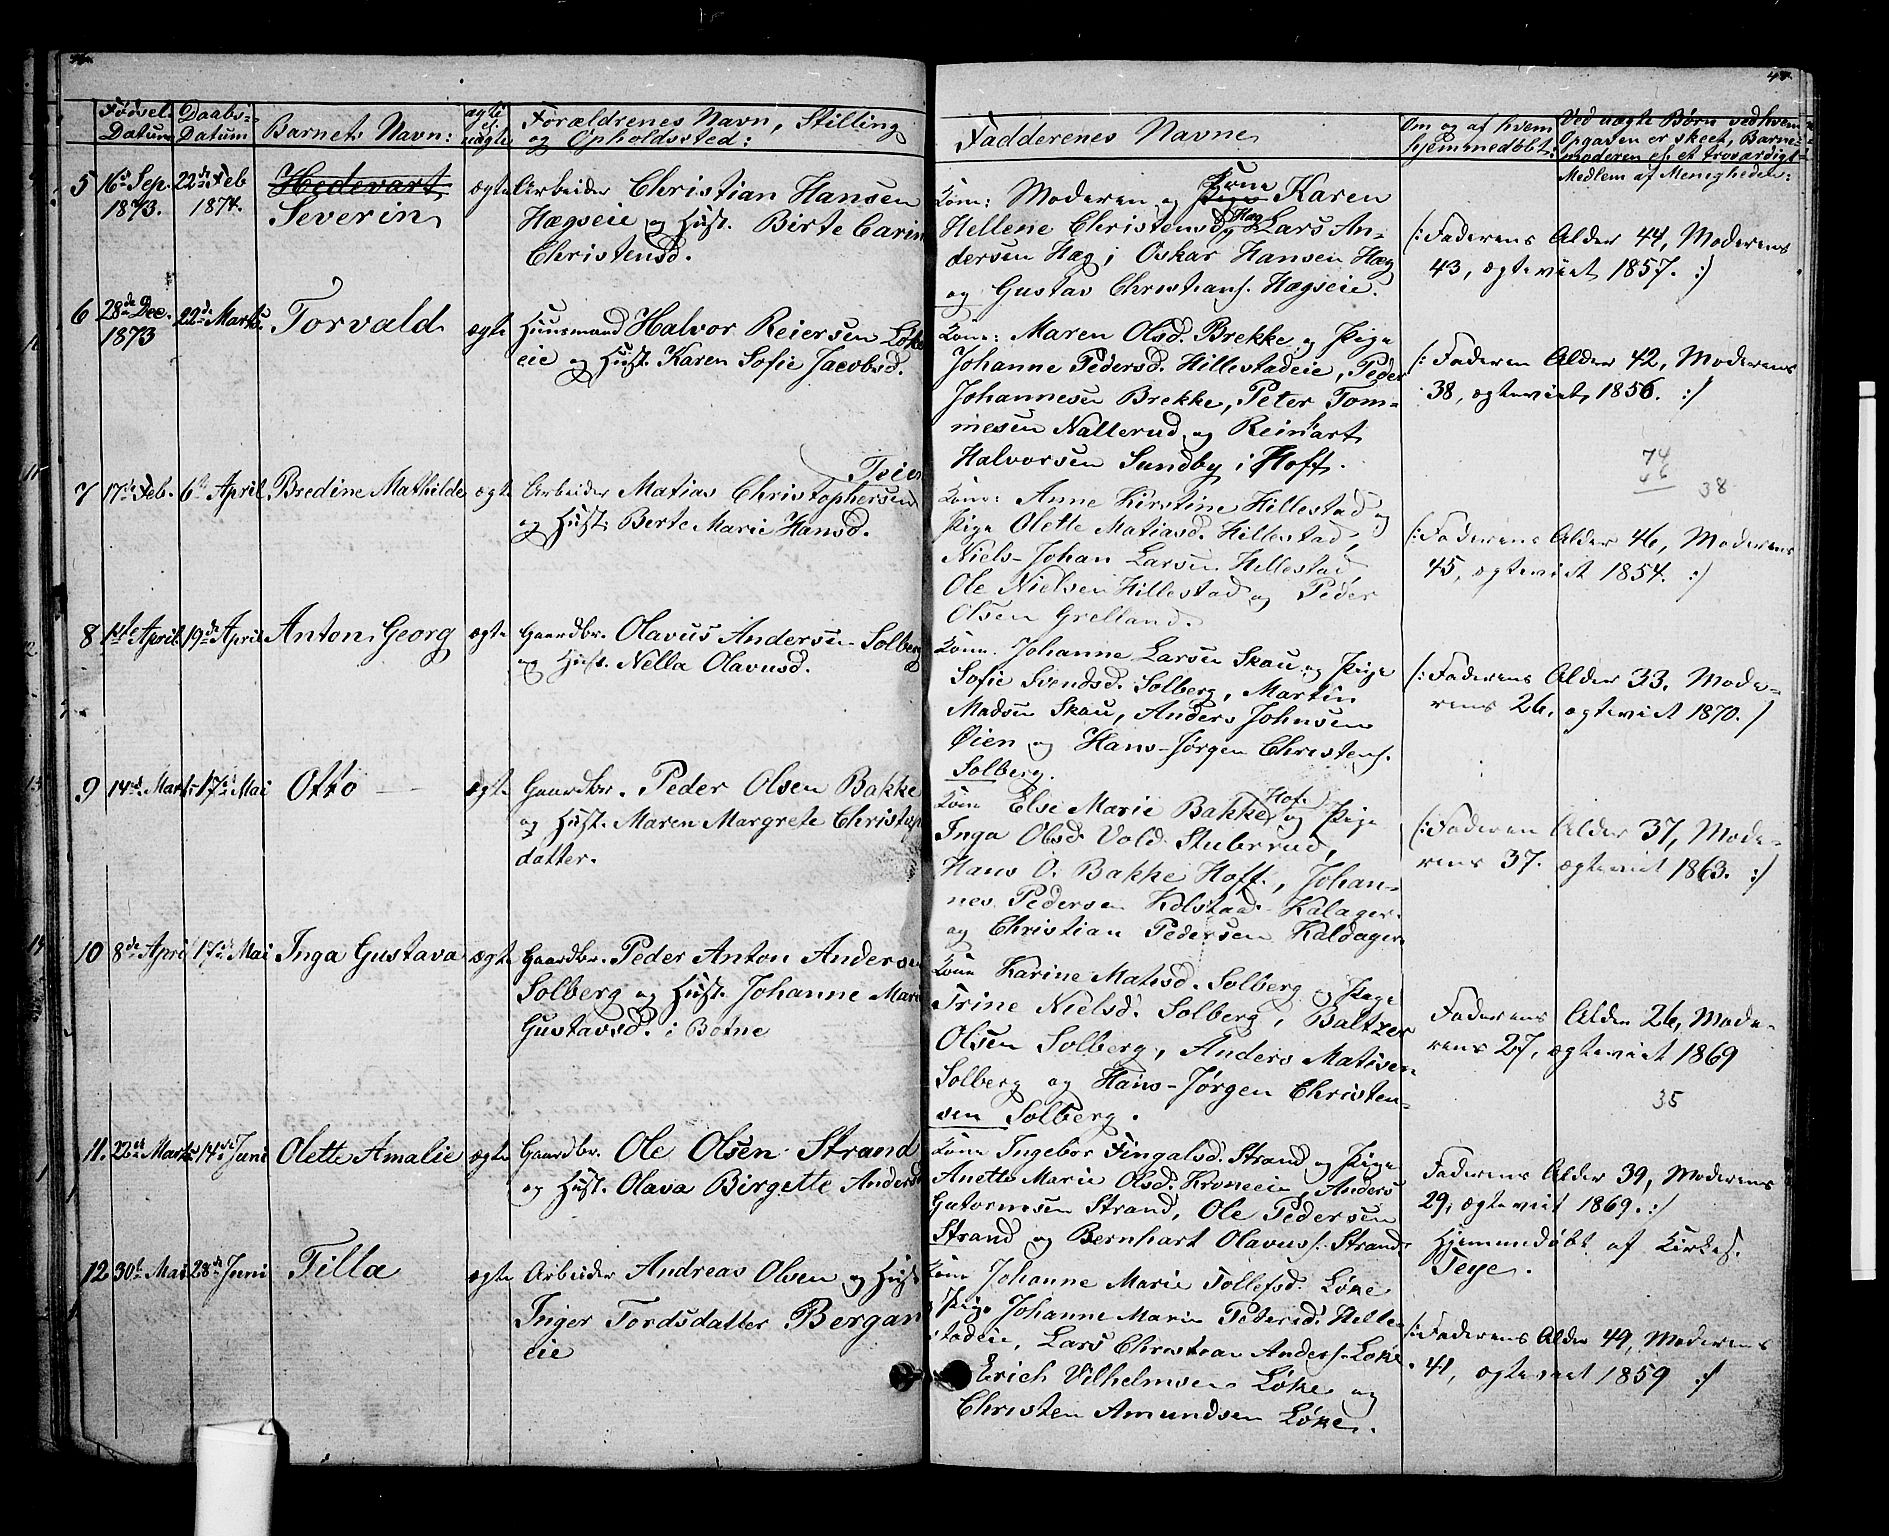 47.
Fødsels Datum
Daabs-Datum
Barnets Navn:
ægte el. uægte
Forældrenes Navn, Stilling
og Opholdssted:
Fadderenes Navne
Om og af hvem
hjemmedøbt:
Ved uægte Børn ved hvem
Opgaven er skeet, Barne-
moderen el. et troværdigt
Medlem af Menigheden:
5 16de Sep. 22de Feb Hedevart ægte Arbeider Christian Hansen
1873. 1874. Severin Hægseie og Hust. Birte Carin
Christensd.
Kone: Moderen og Pige Kone Karen
Hellene Christensd. Hæg Lars An-
dersen Hæg, Oskar Hansen Hæg
og Gustav Christians. Hægseie.
(: Faderens Alder 44, Moderens
43, ægteviet 1857. :)
6 28de Dec. 22de Marts Torvald ægte Huusmand Halvor Reiersen Løke
1873 eie og Hust. Karen Sofie Jacobsd.
Kone: Maren Olsd. Brekke og Pige
Johanne Pedersd. Hillestadeie, Peder
Johannesen Brekke, Peter Tom-
mesen Nallerud og Reinart
Halvorsen Sundby i Hoff.
(: Faderen Alder 42, Moderens
38, ægteviet 1856. :)
74
38
7 17de Feb. 6te April Bredine Mathilde ægte Arbeider Matias Christophersen Teien
og Hust. Berte Marie Hansd.
Kone: Anne Kirstine Hillestad og
Pige Olette Matiasd. Hillestad,
Niels-Johan Larsen Hillestad,
Ole Nielsen Hillestad og Peder
Olsen Grelland.
(: Faderens Alder 46, Moderens
45, ægteviet 1854. :)
8 1ste April 19de April Anton Georg ægte Gaardbr. Olavus Andersen Solberg
og Hust. Nella Olavusd.
Kone. Johanne Larsen Skau og Pige
Sofie Svendsd. Solberg, Martin
Madsen Skau, Anders Johnsen
Øien og Hans-Jørgen Christens.
Solberg.
(: Faderens Alder 33. Mode-
rens 26, ægteviet 1870. :)
9 14de Marts 17de Mai Otto ægte Gaardbr. Peder Olsen Bakke
og Hust. Maren Margrete Christop
datter.
Kone Else Marie Bakke Hof. og Pige
Inga Olsd. Vold Stuberud,
Hans O. Bakke Hoff., Johan-
nes Pedersen Kolstad Kalager
og Christian Pedersen Kaldager
(: Faderen Alder 37, Mode-
rens 37. ægteviet 1863. :)
10 8de April 17de Mai Inga Gustava ægte Gaardbr. Peder Anton Andersen
Solberg og Hust. Johanne Marie
Gustavsd. i Botne
Kone Karine Matisd. Solberg og Pige
Trine Nielsd. Solberg, Baltzer
Olsen Solberg, Anders Matisen
Solberg og Hans-Jørgen Christen-
sen Solberg.
Faderens Alder 26, Mode-
rens 27, ægteviet 1869
35
11. 22de Marts 14de Juni Olette Amalie ægte Gaardbr. Ole Olsen Strand
og Hust. Olava Birgette Andersd
Kone Ingebor Fingalsd. Strand og Pige
Anette Marie Olsd. Kroneeie, Anders
Gutormesen Strand, Ole Pedersen
Strand og Bernhart Olavuss. Strand
Faderens Alder 39, Moderens
29, ægteviet 1869. :)
Hjemmedøbt af Kirkes.
Teye.
12 30te Mai 28de Juni Tilla ægte Arbeider Andreas Olsen og Hust
Inger Tordsdatter Bergan
eie
Kone Johanne Marie Tollefsd. Løke
Pige Johanne Marie Petersd. Hille-
stadeie, Lars Christian Anders. Løke.
Erich Vilhelmsen Løke og
Christen Amundsen Løke.
(: Faderens Alder 49, Moderens
41, ægteviet 1859 :)